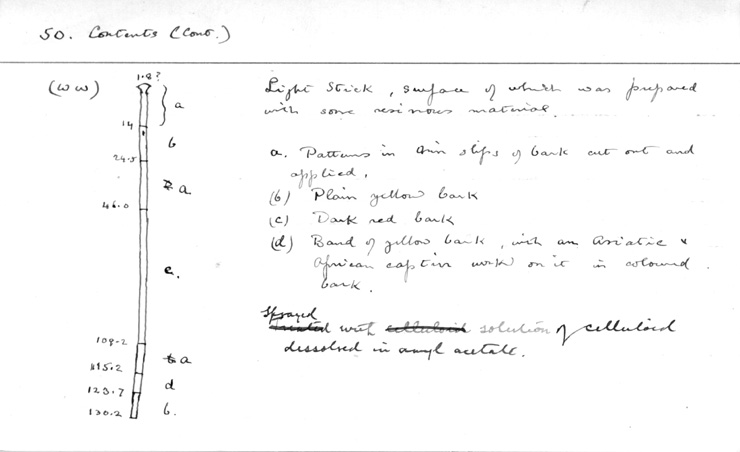 50. Contents (Cont.)
(ww)
1.8?
a
14
b
24.5
a
46.0
c.
108.2
a
115.2
d
123.7
130.2
b.
Light Stick, surface of which was prepared
with some resinous material.
a. Patterns in thin slips of bark cut out and
applied.
(b) Plain yellow bark
(c) Dark red bark
(d) Band of yellow bark, with an Asiatic &
African captive on it in coloured
bark.
Sprayed
treated with celluloid solution of celluloid
dissolved in amyl acetate.